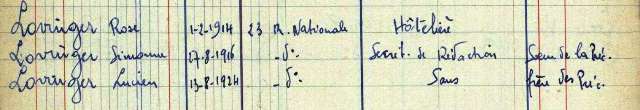 Lovinger Rose 1-2-1914 23 R. Nationale Hôtelière
Lovinger Simonne 27-8-1916 -d°- Secrét. de Rédaction Soeur de la Préc.
Lovinger Lucien 13-8-1924 -d°- Sans frère des Préc.